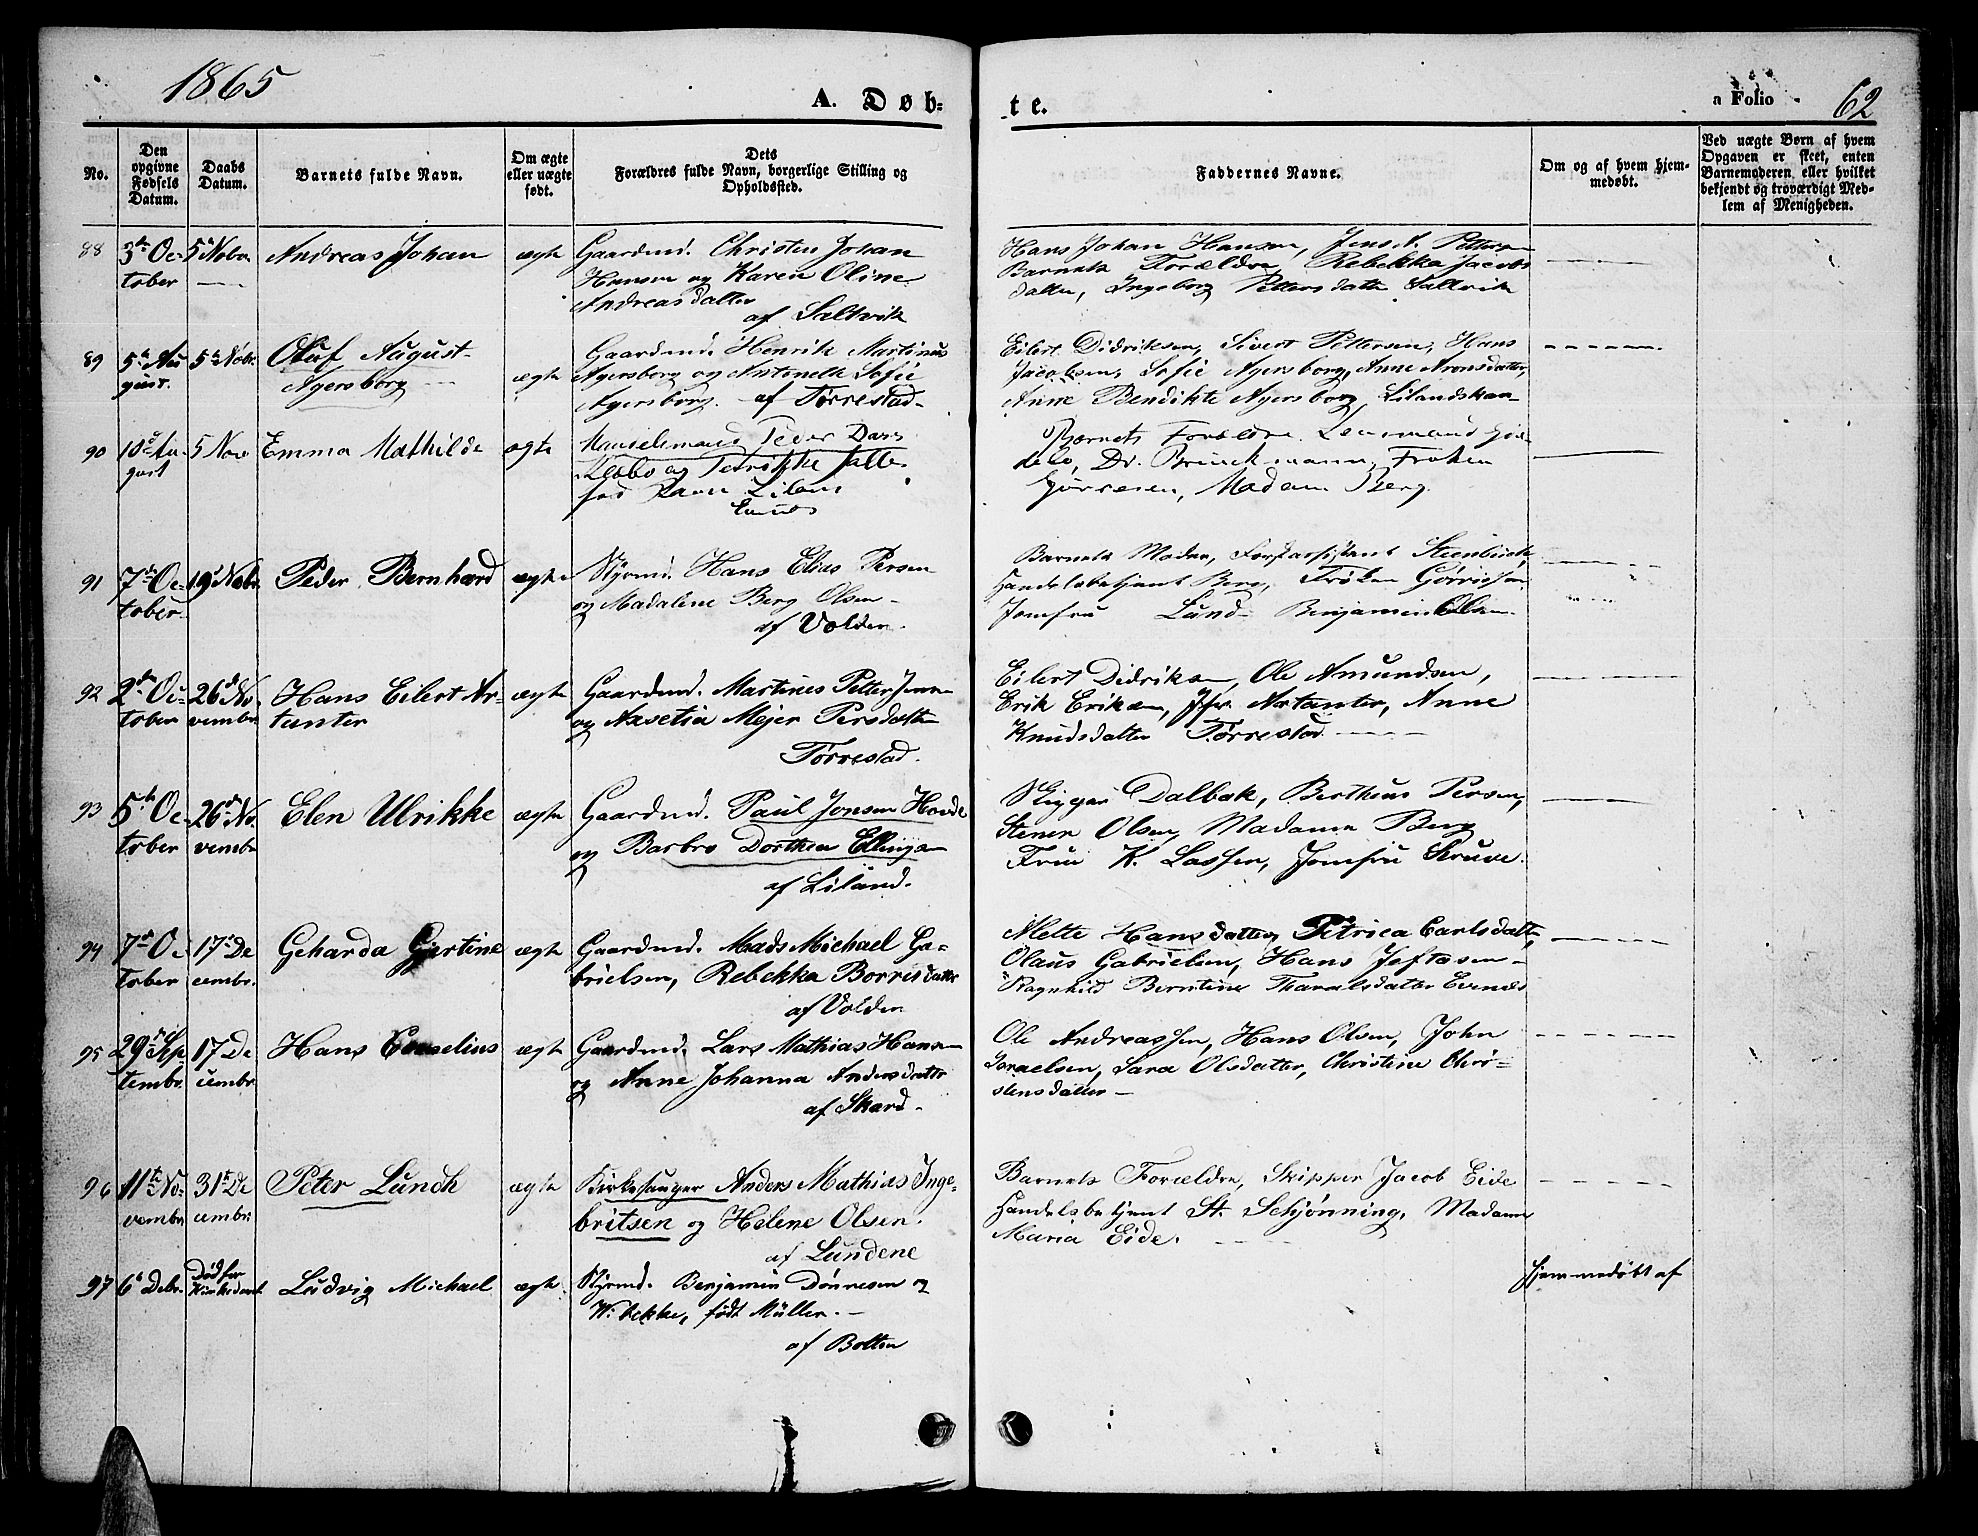 1865
A. Døb-
te.
a Folio
62
No.
Den opgivne Fødsels Datum.
Daabs Datum.
Barnets fulde Navn.
Om ægte eller uægte født.
Dets Forældres fulde Navn, borgerlige Stilling og Opholdssted.
Faddernes Navne.
Om og af hvem hjemmedøbt.
Ved uægte Børn af hvem Opgaven er skeet, enten Barnemoderen eller hvilket bekjendt og troværdigt Medlem af Menigheden.
88 3die Oc- 5te Nobr. Andreas Johan ægte Gaardmd. Christen Johan
tober Hansen og Karen Oline
Andreasdatter
af Saltvik
Hans Johan Hansen, Jens A. Pettersen
Barnets Forældre, Rebekka Jacobs
datter, Ingeborg Pettersdatter Saltvik
89 5te Au- 5te Nobr. Oluf August Gaardmd. Henrik Martinus
gust. Agersborg ægte Agersborg og Antonette Sofie
Agersborg. af Tørrestad
Eilert Didriksen, Sivert Pettersen, Hans
Jacobsen, Sofie Agersborg, Anne Aronsdatter,
Anne Bendikte Agersborg Lilands
90 10de Au- 5 Nov Emma Mathilde ægte
gust og Petrikke
Barnets Forældre. Lensmand
Dr. Brinchmann, Frøken
Gørrisen, Madam Berg.
91 7de Oc- 19de Nobr. Peder Bernhard ægte Styrmd. Hans Elias Persen
tober og Madalene Berg Olsen
af Volden.
Barnets Moder, Forstassistent
Handelsbetjent Berg, Frøken Gørrisen
Jomfru Lund Benjamin Olsen
92 2den Oc- 26de No- Hans Eilert Ar- ægte Gaardmd. Martines Petter Jensen
tober vembr. tanter og Axsetia Mejer Persdatter
Tørrestad.
Eilert Didriksen, Ole Amundsen,
Erik Eriksen, Jfr. Artanter, Anne
Knudsdatter Tørrestad.
93 5te Oc- 26de No- Elen Ulrikke ægte Gaardmd. Paul Jonsen Hovde
tober vembr og Barbro Dorthea Ellings
af Liland.
Dalbak, Berthius Persen,
Stener Olsen, Madame Berg
Fru K. Lassen, Jomfru Kruve.
94 7de Oc- 17de De Geharda Gjertine ægte Gaardmd. Mads Michael Ga-
tober cembr. brielsen, Rebekka Borrisdatter
af Volden
Mette Hansdatter, Petrica Carlsdatter,
Olaus Gabrielsen, Hans Jeftasen
Ragnhild Berntine Tharalsdatter Evenæs
95 29de Sep- 17de De Hans Cornelius ægte Gaardmd. Lars Mathias Hansen
tembr. cembr. og Anne Johanna Andersdatter
af Skard.
Ole Andreassen, Hans Olsen, John
Israelsen, Sara Olsdatter, Christine Chri-
stensdatter
96 11te No- 31te De Peter Lundh ægte Kirkesanger Anders Mathias Inge-
vembr. cembr. britsen og Helene Olsen.
af Lundene
Barnets Forældre, Skipper Jacob Eide
Handelsbetjent St. Schjønning, Madame
Maria Eide.
97 6te Debr. Død før Ludvig Michael ægte. Styrmd. Benjamin Dønnesen og
Wibekke, født Müller.
af Bolten
hjemmedøbt af